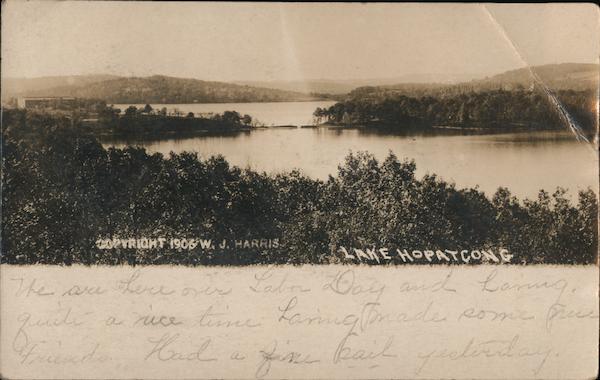 COPYRIGHT 1906 W. J. HARRIS
LAKE HOPATCONG
We are here over Labor Day and having
quite a nice time having made some nice
friends. Had a fine sail yesterday.